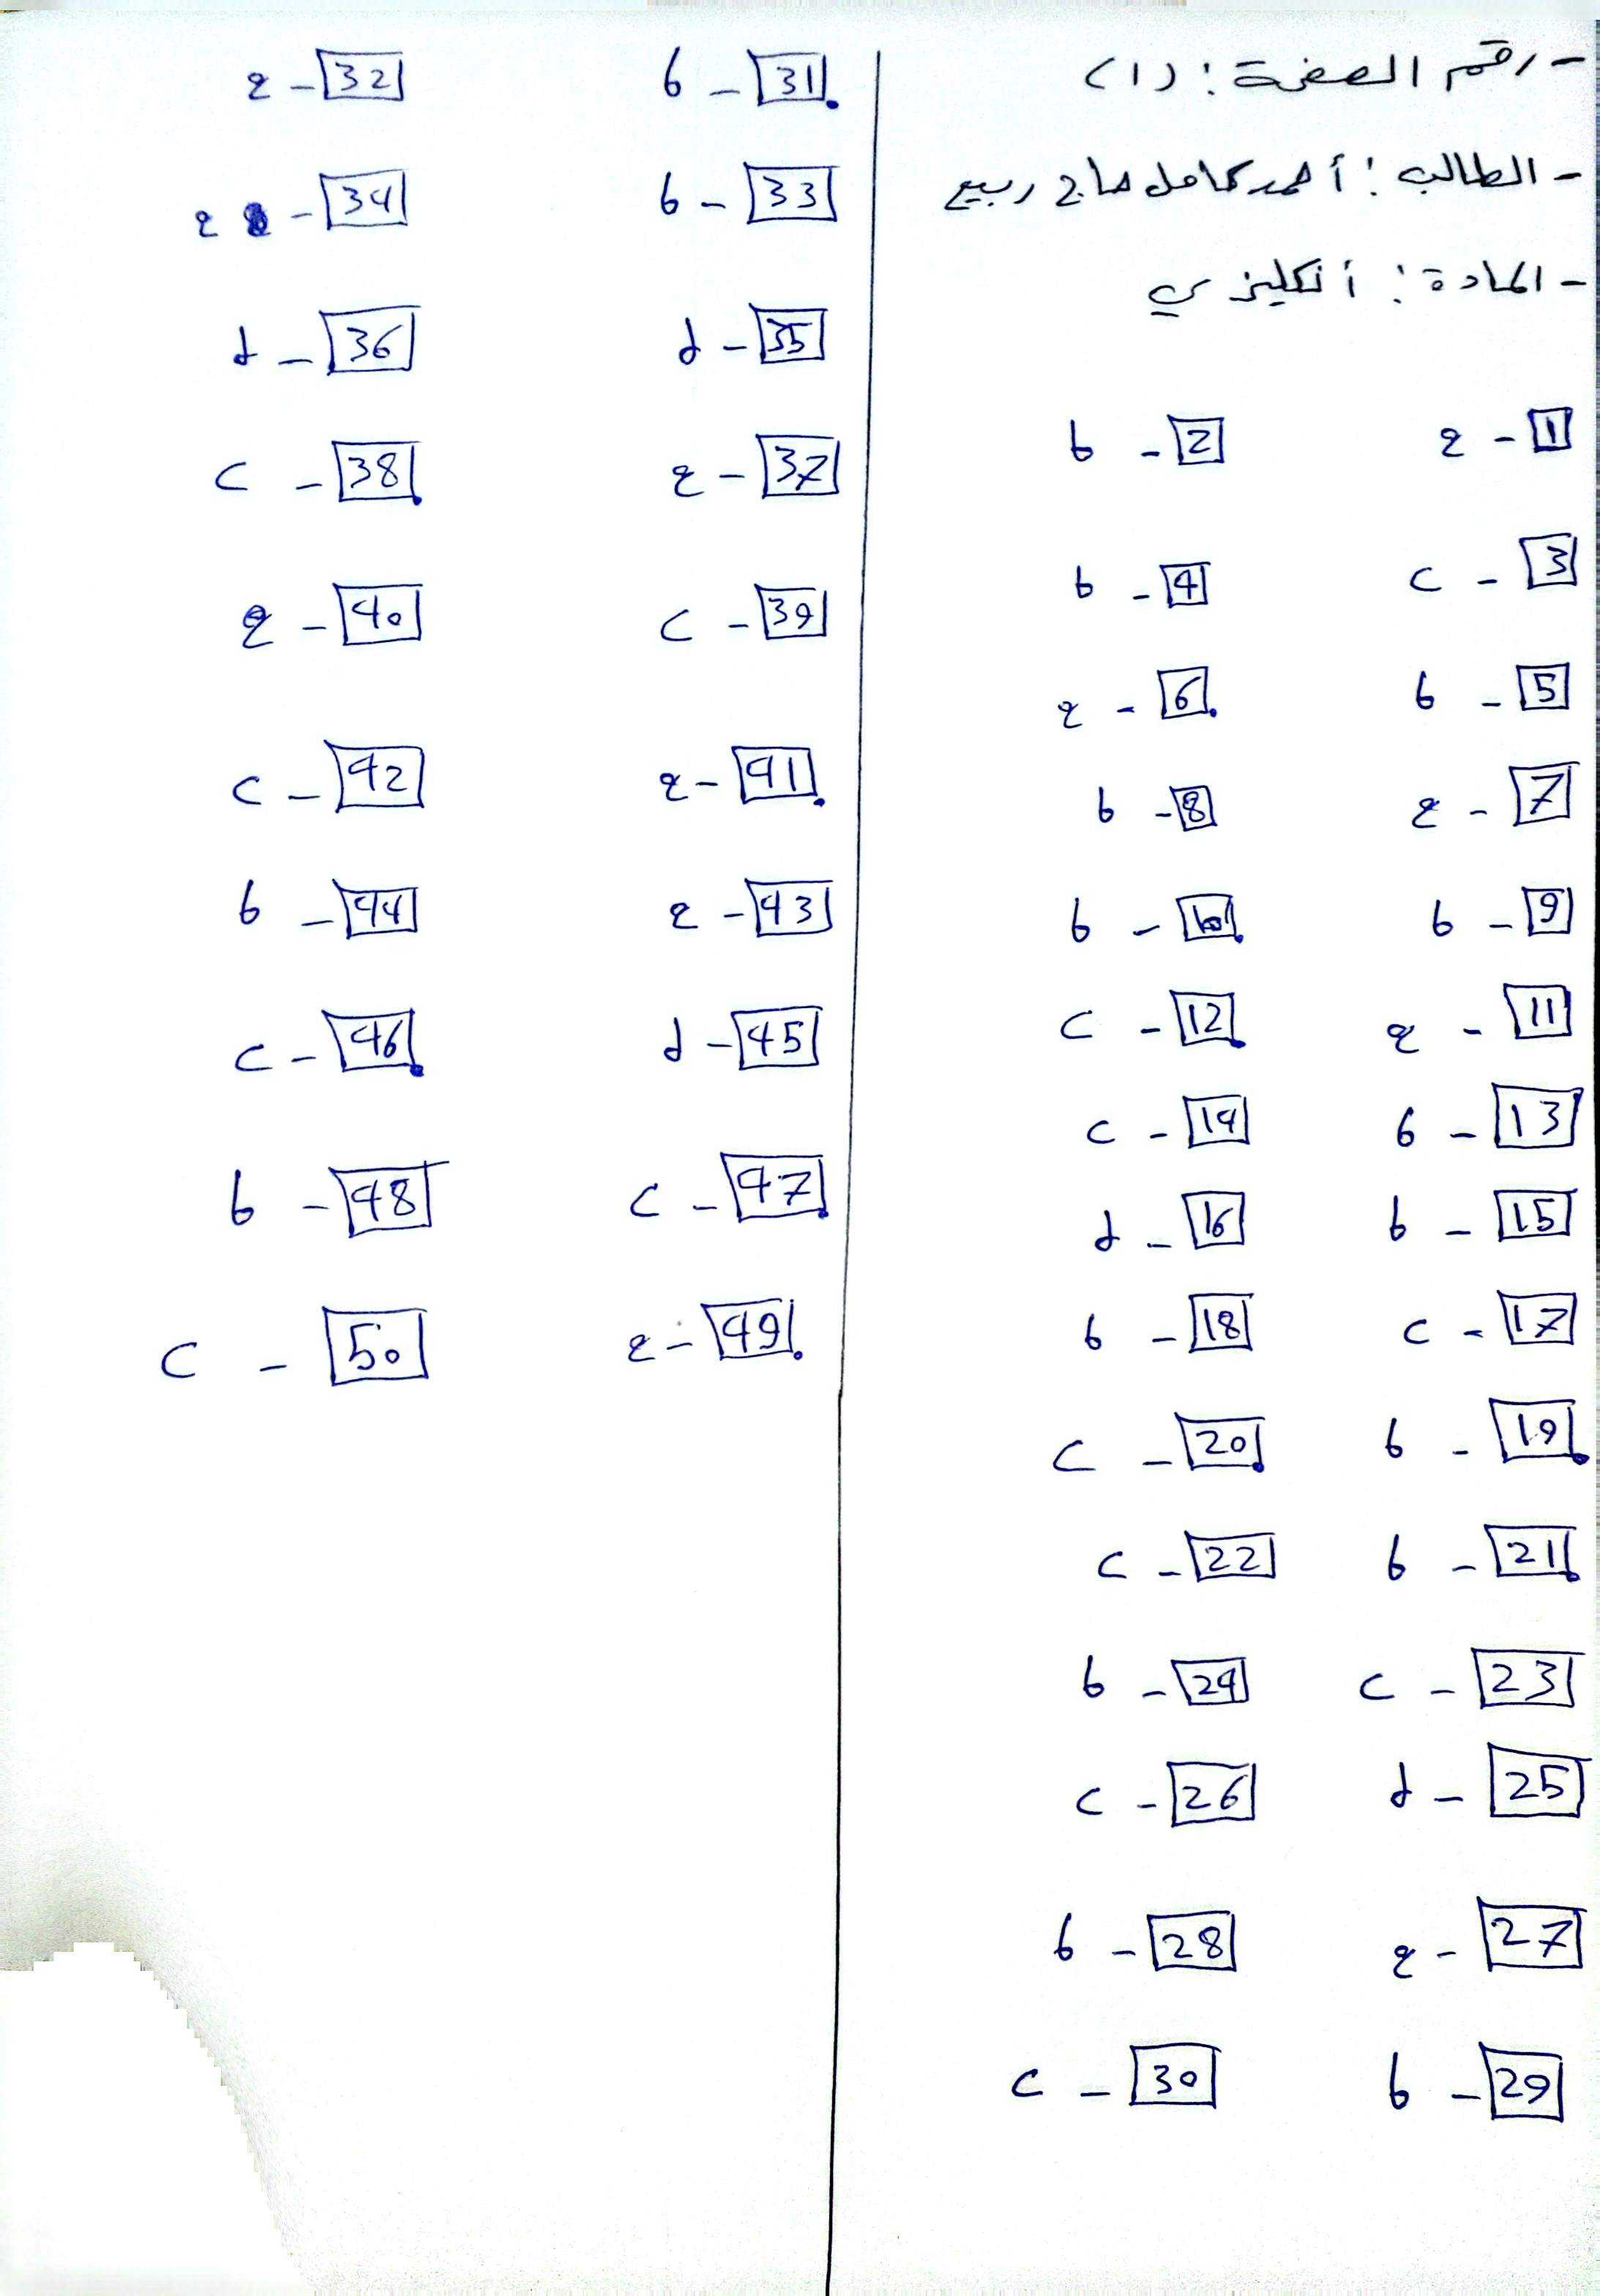 - رقم الصفحة: (١)
- الطالب: أحمد كامل حاج ربيع
- المادة: أنكليزي
1 - a 2 - b
3 - c 4 - b
5 - b 6 - a
7 - a 8 - b
9 - b 10 - b
11 - a 12 - c
13 - b 14 - c
15 - b 16 - d
17 - c 18 - b
19 - b 20 - c
21 - b 22 - c
23 - c 24 - b
25 - d 26 - c
27 - a 28 - b
29 - b 30 - c
31 - b 32 - a
33 - b 34 - a
35 - d 36 - d
37 - a 38 - c
39 - c 40 - a
41 - a 42 - c
43 - a 44 - b
45 - d 46 - c
47 - c 48 - b
49 - a 50 - c